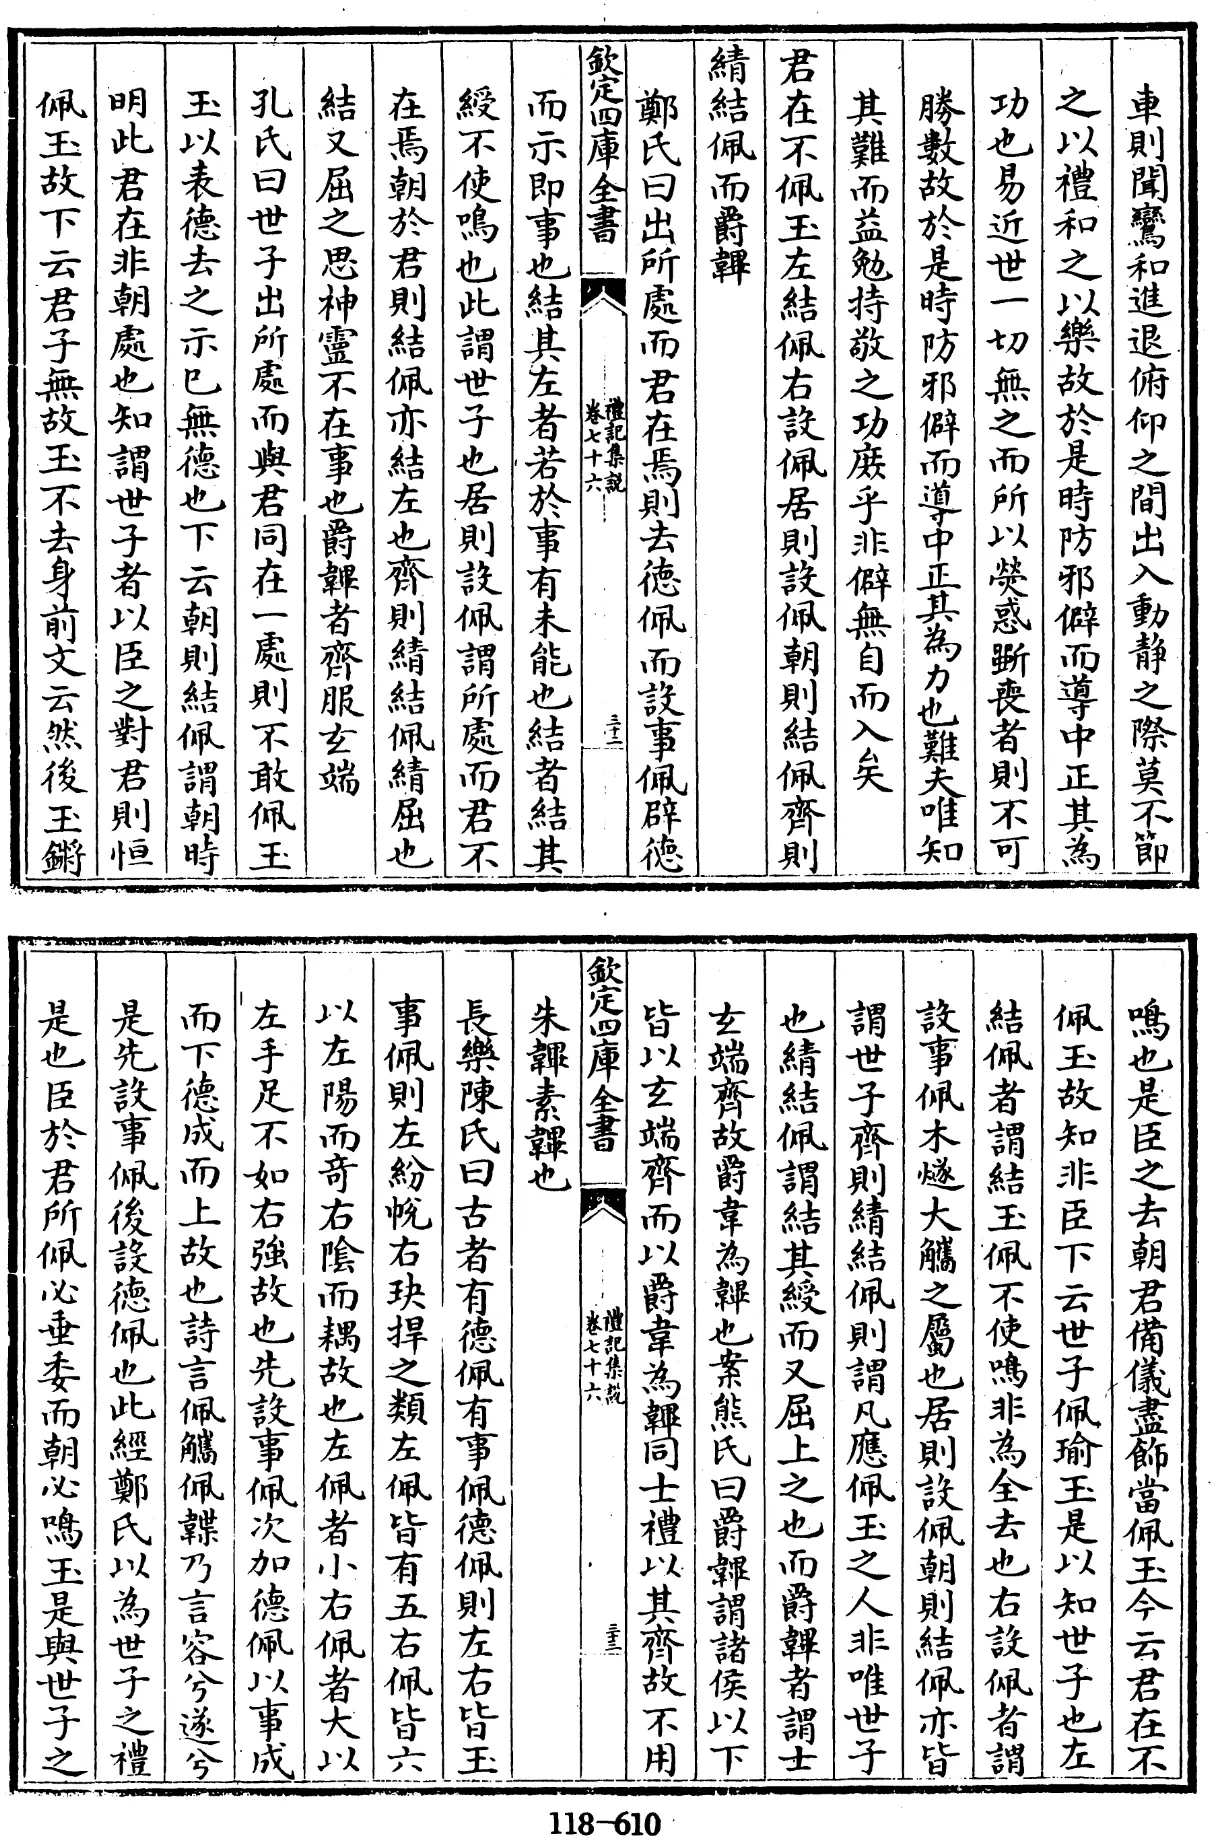 車則聞鸞和進退俯仰之間出入動靜之際莫不節
之以禮和之以樂故於是時防邪僻而導中正其為
功也易近世一切無之而所以熒惑斲喪者則不可
勝數故於是時防邪僻而導中正其為力也難夫唯知
其難而益勉持敬之功庻乎非僻無自而入矣
君在不佩玉左結佩右設佩居則設佩朝則結佩齊則
綪結佩而爵韠
鄭氏曰出所處而君在焉則去徳佩而設事佩辟徳
欽定四庫全書
禮記集説
卷七十六
三十二
而示即事也結其左者若於事有未能也結者結其
綬不使鳴也此謂世子也居則設佩謂所處而君不
在焉朝於君則結佩亦結左也齊則綪結佩綪屈也
結又屈之思神靈不在事也爵韠者齊服玄端
孔氏曰世子出所處而與君同在一處則不敢佩玉
玉以表德去之示已無德也下云朝則結佩謂朝時
明此君在非朝處也知謂世子者以臣之對君則恒
佩玉故下云君子無故玉不去身前文云然後玉鏘
鳴也是臣之去朝君備儀盡飾當佩玉今云君在不
佩玉故知非臣下云世子佩瑜玉是以知世子也左
結佩者謂結玉佩不使鳴非為全去也右設佩者謂
設事佩木燧大觿之屬也居則設佩朝則結佩亦皆
謂世子齊則綪結佩則謂凡應佩玉之人非唯世子
也綪結佩謂結其綬而又屈上之也而爵韠者謂士
玄端齊故爵韋為韠也案熊氏曰爵韠謂諸侯以下
皆以玄端齊而以爵韋為韠同士禮以其齊故不用
欽定四庫全書
禮記集説
卷七十六
三十三
朱韠素韠也
長樂陳氏曰古者有德佩有事佩德佩則左右皆玉
事佩則左紛帨右玦捍之類左佩皆有五右佩皆六
以左陽而竒右陰而耦故也左佩者小右佩者大以
左手足不如右強故也先設事佩次加德佩以事成
而下德成而上故也詩言佩觿佩韘乃言容兮遂兮
是先設事佩後設德佩也此經鄭氏以為世子之禮
是也臣於君所佩必垂委而朝必鳴玉是與世子之
118-610